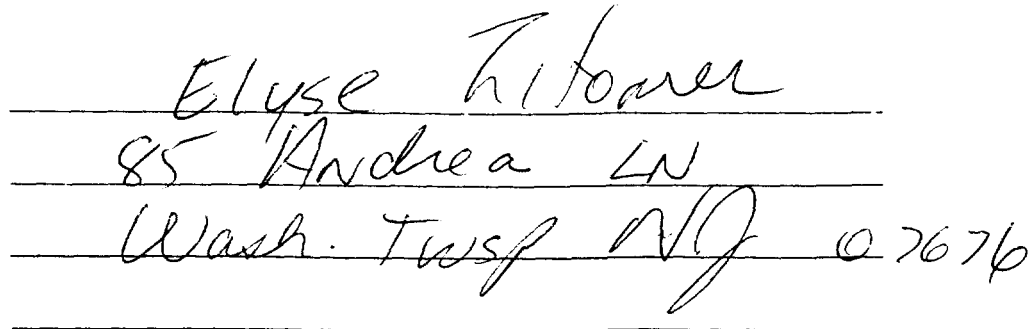 Elyse Zitomer
85 Andrea LN
Wash. Twsp NJ 07676